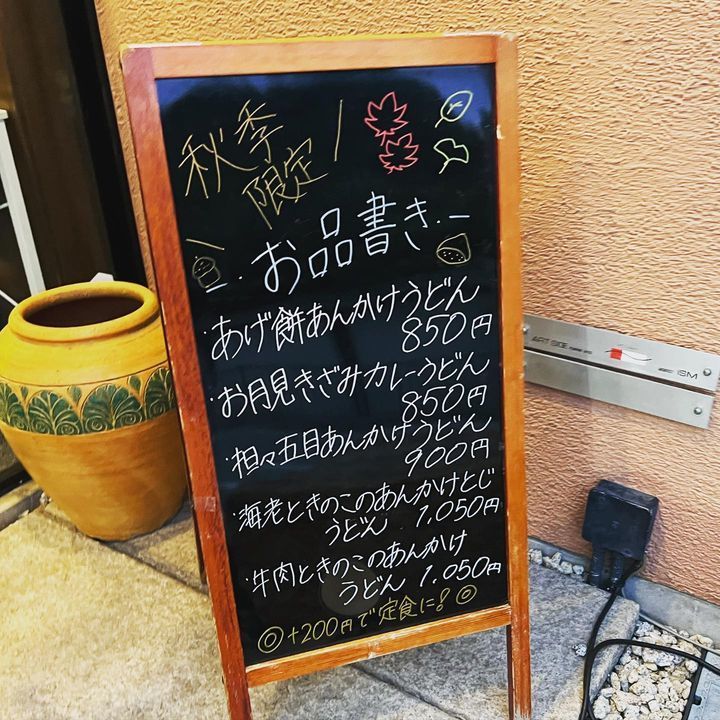 秋季
限定
お品書き
・あげ餅あんかけうどん
850円
・お月見きざみカレーうどん
850円
・担々五目あんかけうどん
900円
・海老ときのこのあんかけとじ
うどん 1,050円
・牛肉ときのこのあんかけ
うどん 1,050円
◎+200円で定食に!◎
ART SIDE
ISM